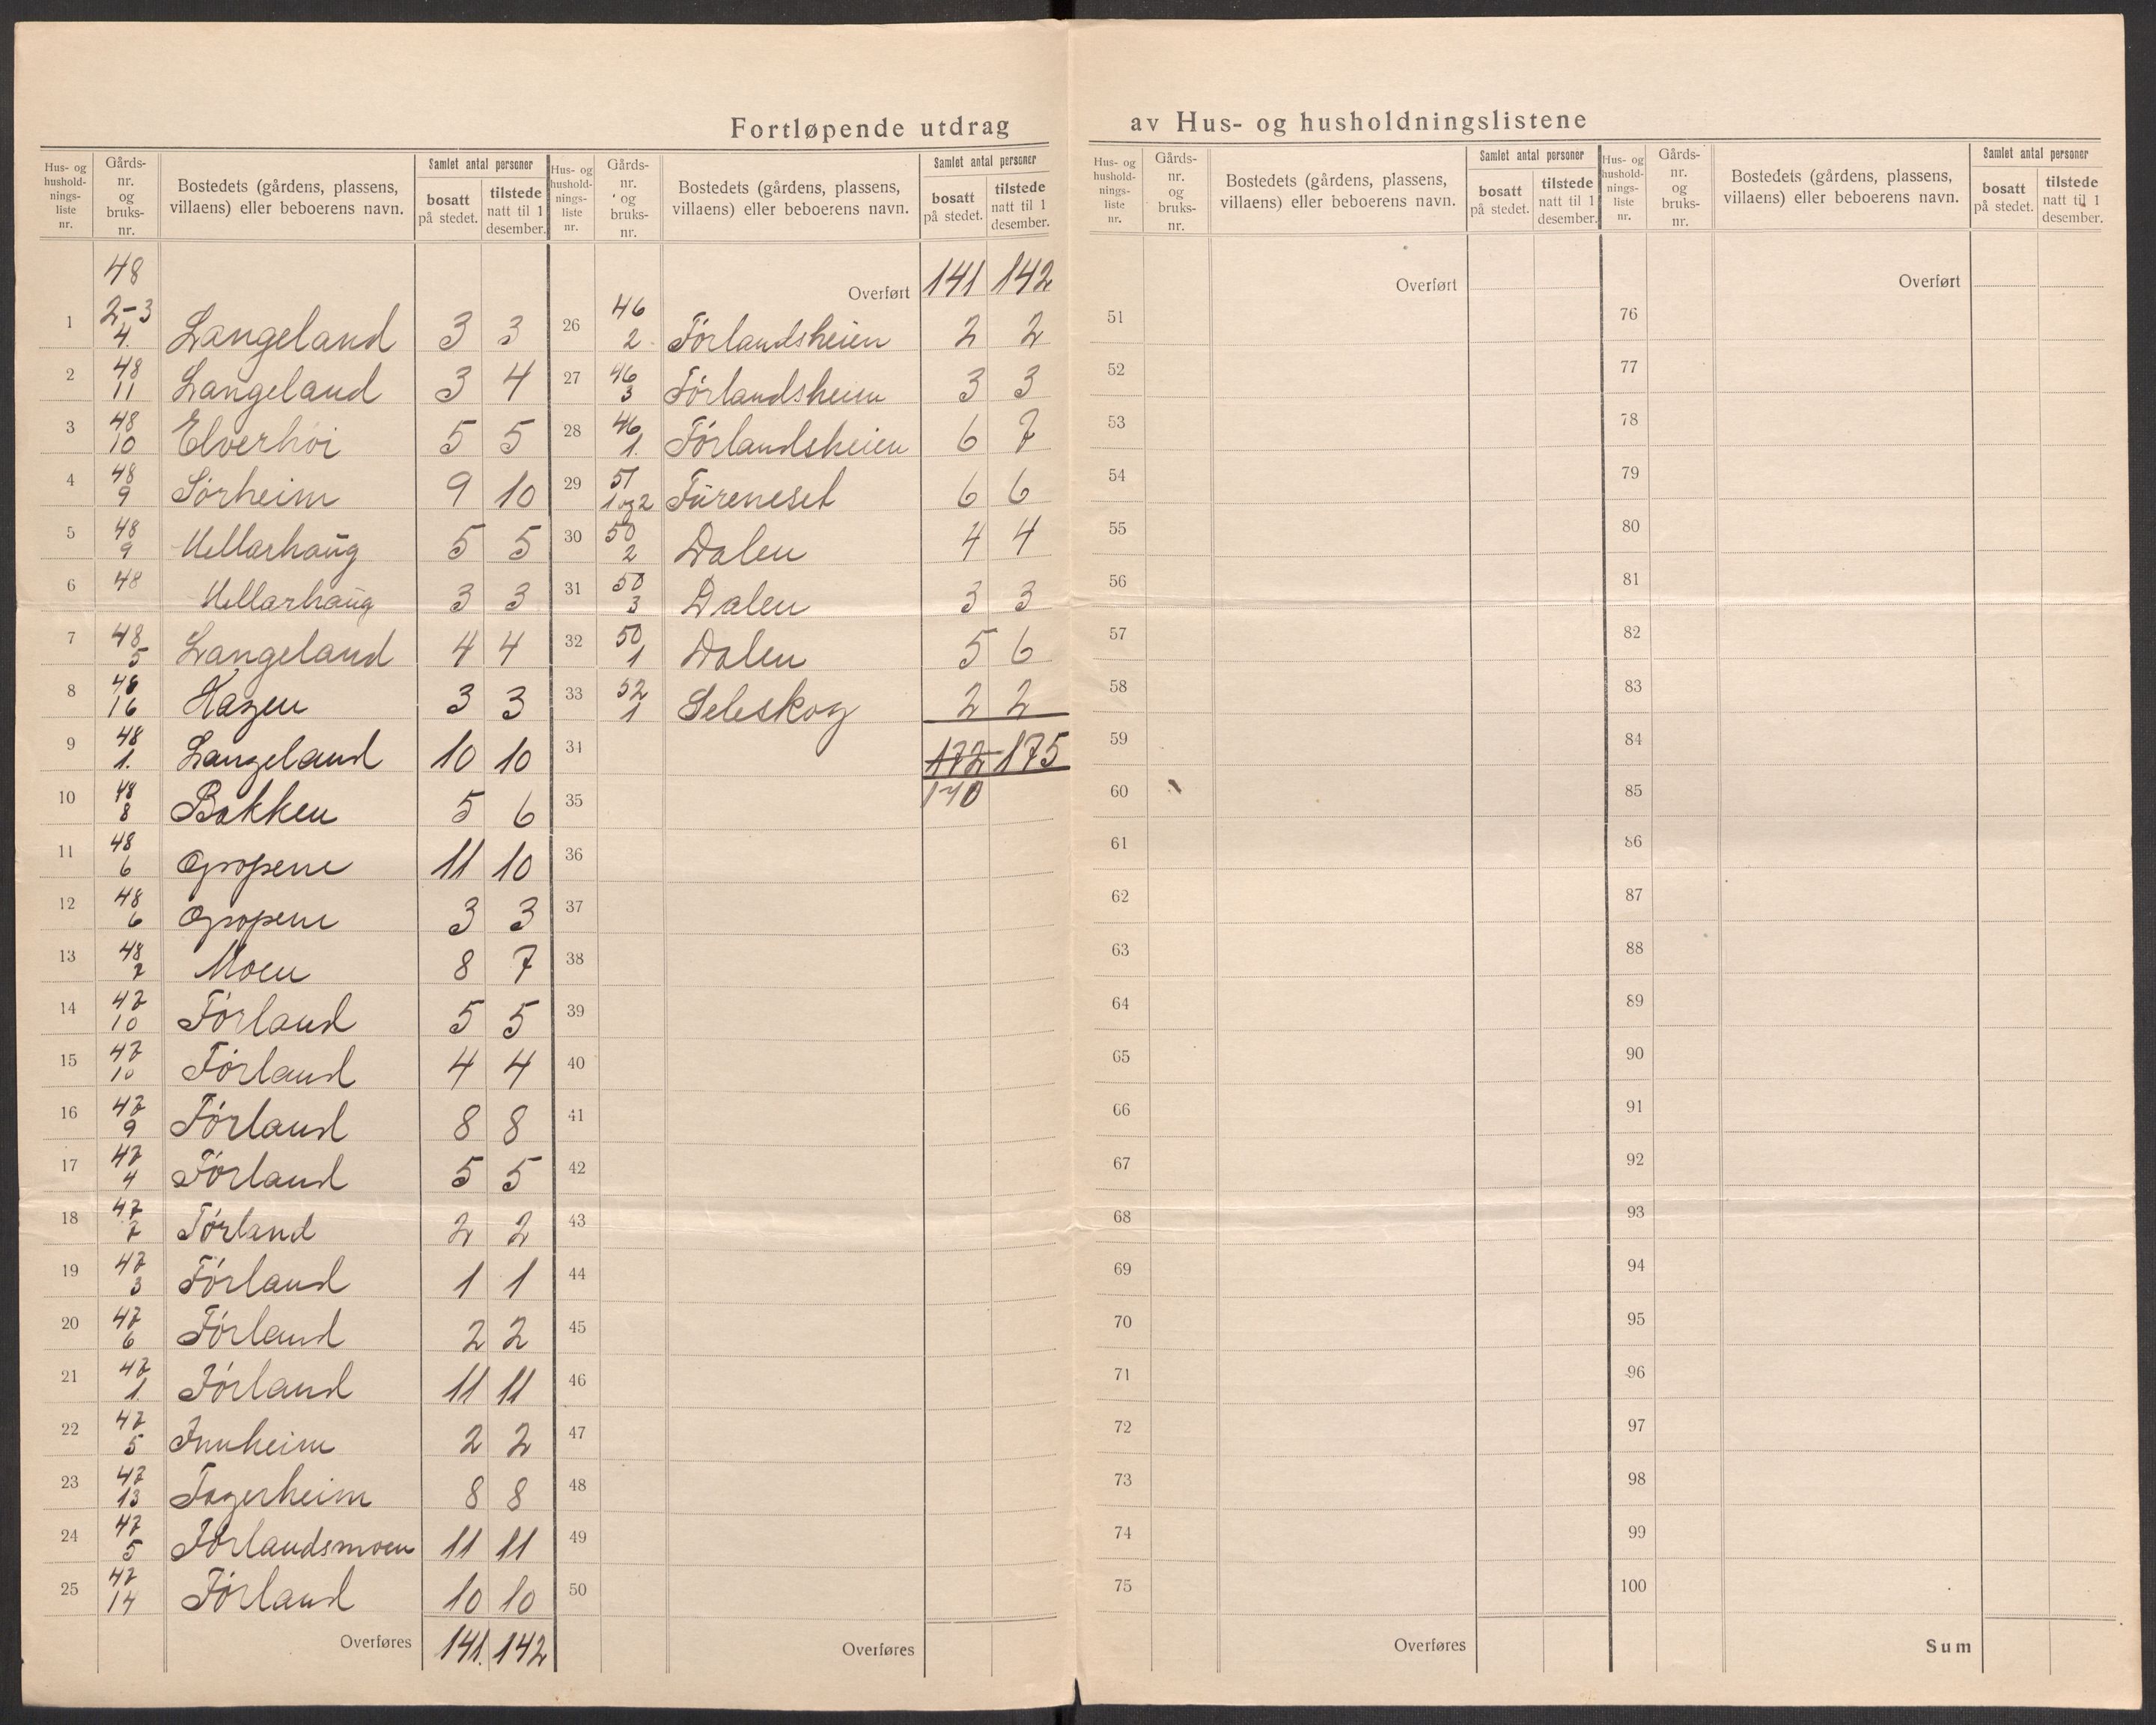 Fortløpende utdrag av Hus- og husholdningslistene
Hus- og hushold-nings-liste nr. | Gårds-nr. og bruks-nr. | Bostedets (gårdens, plassens, villaens) eller beboerens navn. | Samlet antal personer | bosatt på stedet. | tilstede natt til 1 desember.
1 | 48 2-3 4. | Langeland | 3 | 3
2 | 48 11 | Langeland | 3 | 4
3 | 48 10 | Elverhöi | 5 | 5
4 | 48 9 | Sörheim | 9 | 10
5 | 48 9 | Hellarhaug | 5 | 5
6 | 48 | Hellarhaug | 3 | 3
7 | 48 5 | Langeland | 4 | 4
8 | 48 16 | Hagen | 3 | 3
9 | 48 1. | Langeland | 10 | 10
10 | 48 8 | Bakken | 5 | 6
11 | 48 6 | Gropene | 11 | 10
12 | 48 6 | Gropene | 3 | 3
13 | 48 7 | Moen | 8 | 7
14 | 47 10 | Förland | 5 | 5
15 | 47 10 | Förland | 4 | 4
16 | 47 9 | Förland | 8 | 8
17 | 47 4 | Förland | 5 | 5
18 | 47 7 | Förland | 2 | 2
19 | 47 3 | Förland | 1 | 1
20 | 47 6 | Förland | 2 | 2
21 | 47 1. | Förland | 11 | 11
22 | 47 5 | Innheim | 2 | 2
23 | 47 13 | Fagerheim | 8 | 8
24 | 47 5 | Förlandsmoen | 11 | 11
25 | 47 14 | Förland | 10 | 10
Overføres | 141. | 142
Hus- og hushold-nings-liste nr. | Gårds-nr. og bruks-nr. | Bostedets (gårdens, plassens, villaens) eller beboerens navn. | Samlet antal personer | bosatt på stedet. | tilstede natt til 1 desember.
Overført | 141 | 142
26 | 46 2. | Förlandsheien | 2 | 2
27 | 46 3 | Förlandsheien | 3 | 3
28 | 46 1. | Förlandsheien | 6 | 7
29 | 51 1 og 2 | Füreneset | 6 | 6
30 | 50 2 | Dalen | 4 | 4
31 | 50 3 | Dalen | 3 | 3
32 | 50 1 | Dalen | 5 | 6
33 | 52 1 | Seleskog | 2 | 2
34 | 172 | 175
35 | 170
36
37
38
39
40
41
42
43
44
45
46
47
48
49
50
Overføres
Hus- og hushold-nings-liste nr. | Gårds-nr. og bruks-nr. | Bostedets (gårdens, plassens, villaens) eller beboerens navn. | Samlet antal personer | bosatt på stedet. | tilstede natt til 1 desember.
Overført
51
52
53
54
55
56
57
58
59
60
61
62
63
64
65
66
67
68
69
70
71
72
73
74
75
Overføres
Hus- og hushold-nings-liste nr. | Gårds-nr. og bruks-nr. | Bostedets (gårdens, plassens, villaens) eller beboerens navn. | Samlet antal personer | bosatt på stedet. | tilstede natt til 1 desember.
Overført
76
77
78
79
80
81
82
83
84
85
86
87
88
89
90
91
92
93
94
95
96
97
98
99
100
Sum